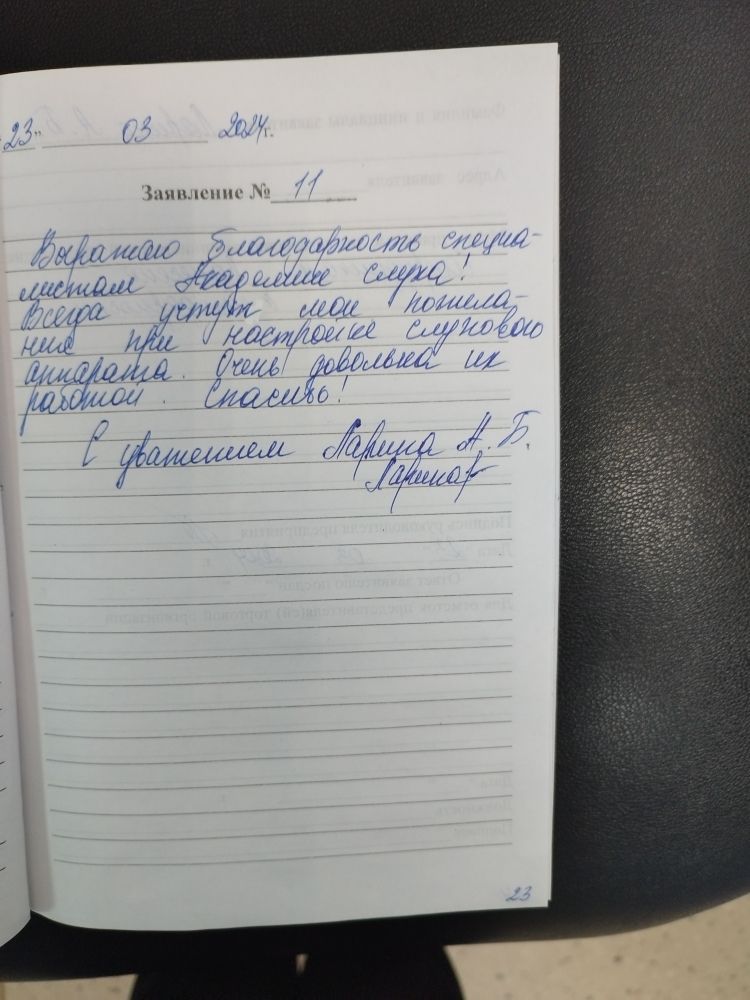 23" 03 2024г.
Заявление № 11
Выражаю благодарность специа-
листам Академии слуха!
Всегда учтут мои пожела-
ния при настройке слухового
аппарата. Очень довольна их
работой. Спасибо!
С уважением Ларина А. Б.
Ларина
23